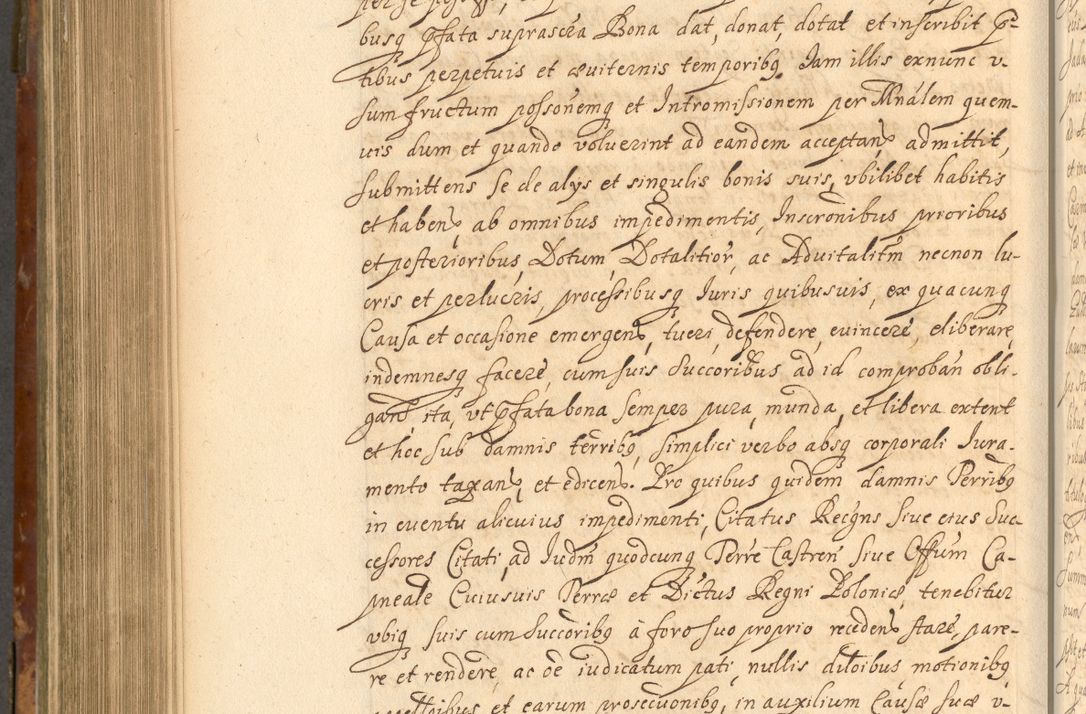 busq pfata suprascza Bona dat, donat, dotat et inscribit p
tibus perpetuis et æviternis temporibq. Iam illis exnunc v-
sumfructum possonemq et Intromissionem per Mnalem quem-
vis dum et quando voluerint ad eandem acceptan, admittit,
submittens se de alys et singulis bonis suis, vbilibet habitis
et haben, ab omnibus impedimentis, Inscronibus prioribus
et posterioribus, Dotum, Dotalitior, ac Advitalitm necnon lu-
cris et perlucris, processibusq Iuris quibusvis, ex quacunq
Causa et occasione emergen, tueri, defendere, evincere, eliberare,
indemnesq facere, cum suis Succoribus ad id comproban obli-
gant ita, vt pfata bona semper pura, munda, et libera extent
et hoc sub damnis terribq, simplici verbo absq corporali Iura-
mento taxan, et edicen. Pro quibus quidem damnis Terribq
in eventu alicuius impedimenti, Citatus Recgns sive eius Suc-
cessores Citati, ad Iudm quodcunq Terre Castren sive Offum Ca-
pneale Cuiusvis Terræ et Dictus Regni Poloniæ, tenebitur
vbiq suis cum Succoribq à foro suo proprio receden stare, pare-
re et rendere, ac oe iudicatum pati, nullis diloibus motionibq
et earum prosecuonibq, in auxilium Causæ suæ v-